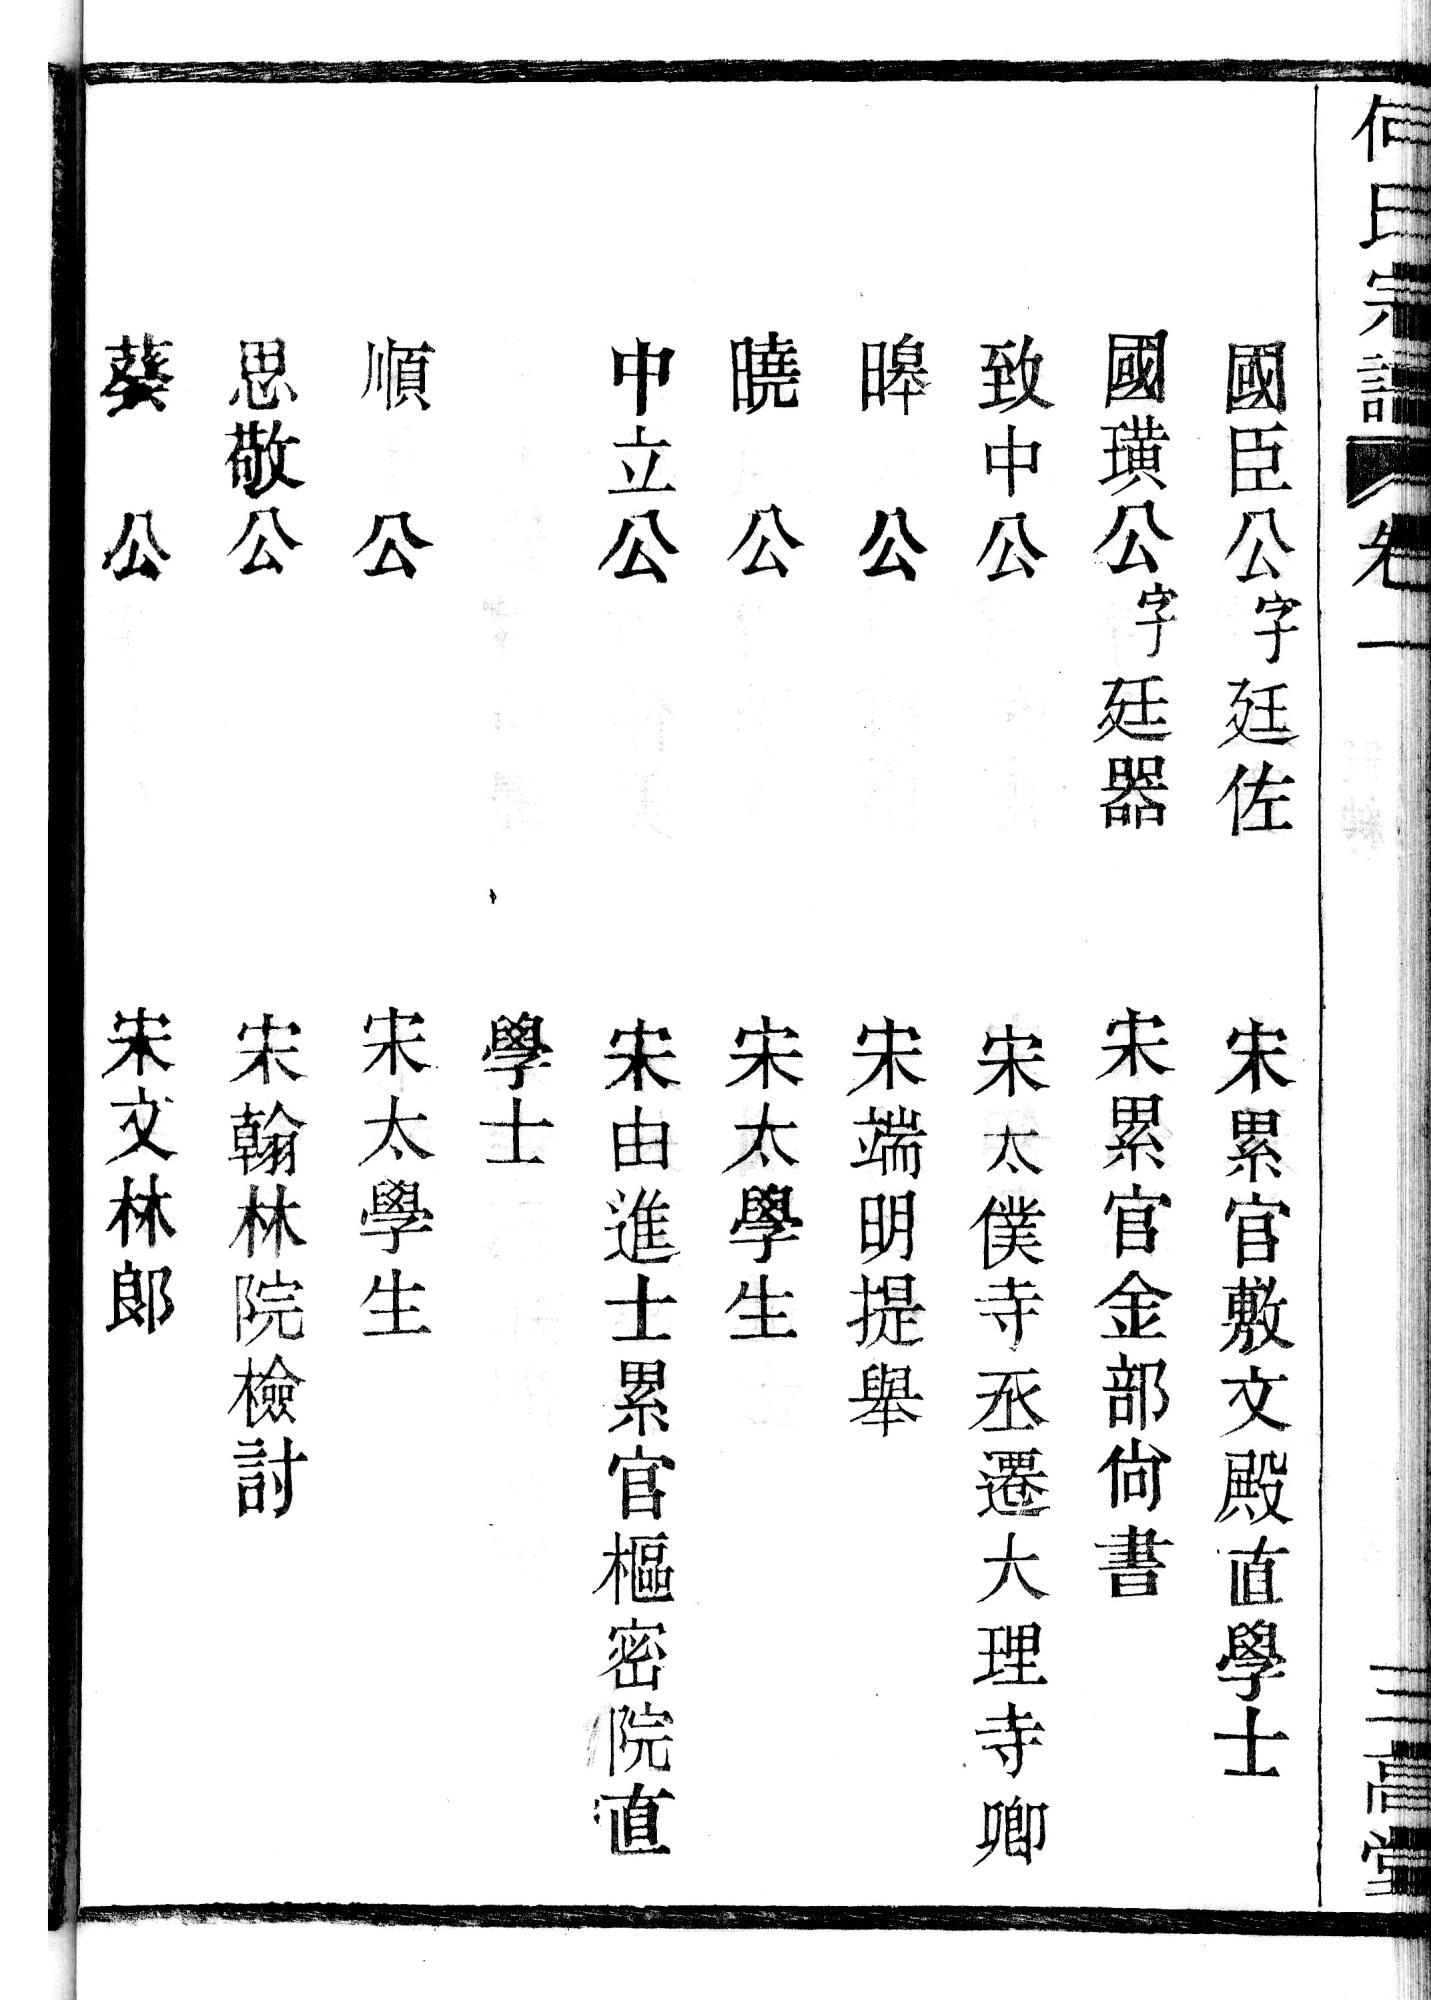 何氏宗譜 卷一 三高堂
國臣公字廷佐 宋累官敷文殿直學士
國璜公字廷器 宋累官金部尙書
致中公 宋太僕寺丞遷大理寺卿
皞公 宋端明提舉
曉公 宋太學生
中立公 宋由進士累官樞密院直
學士
順公 宋太學生
思敬公 宋翰林院檢討
葵公 宋文林郎